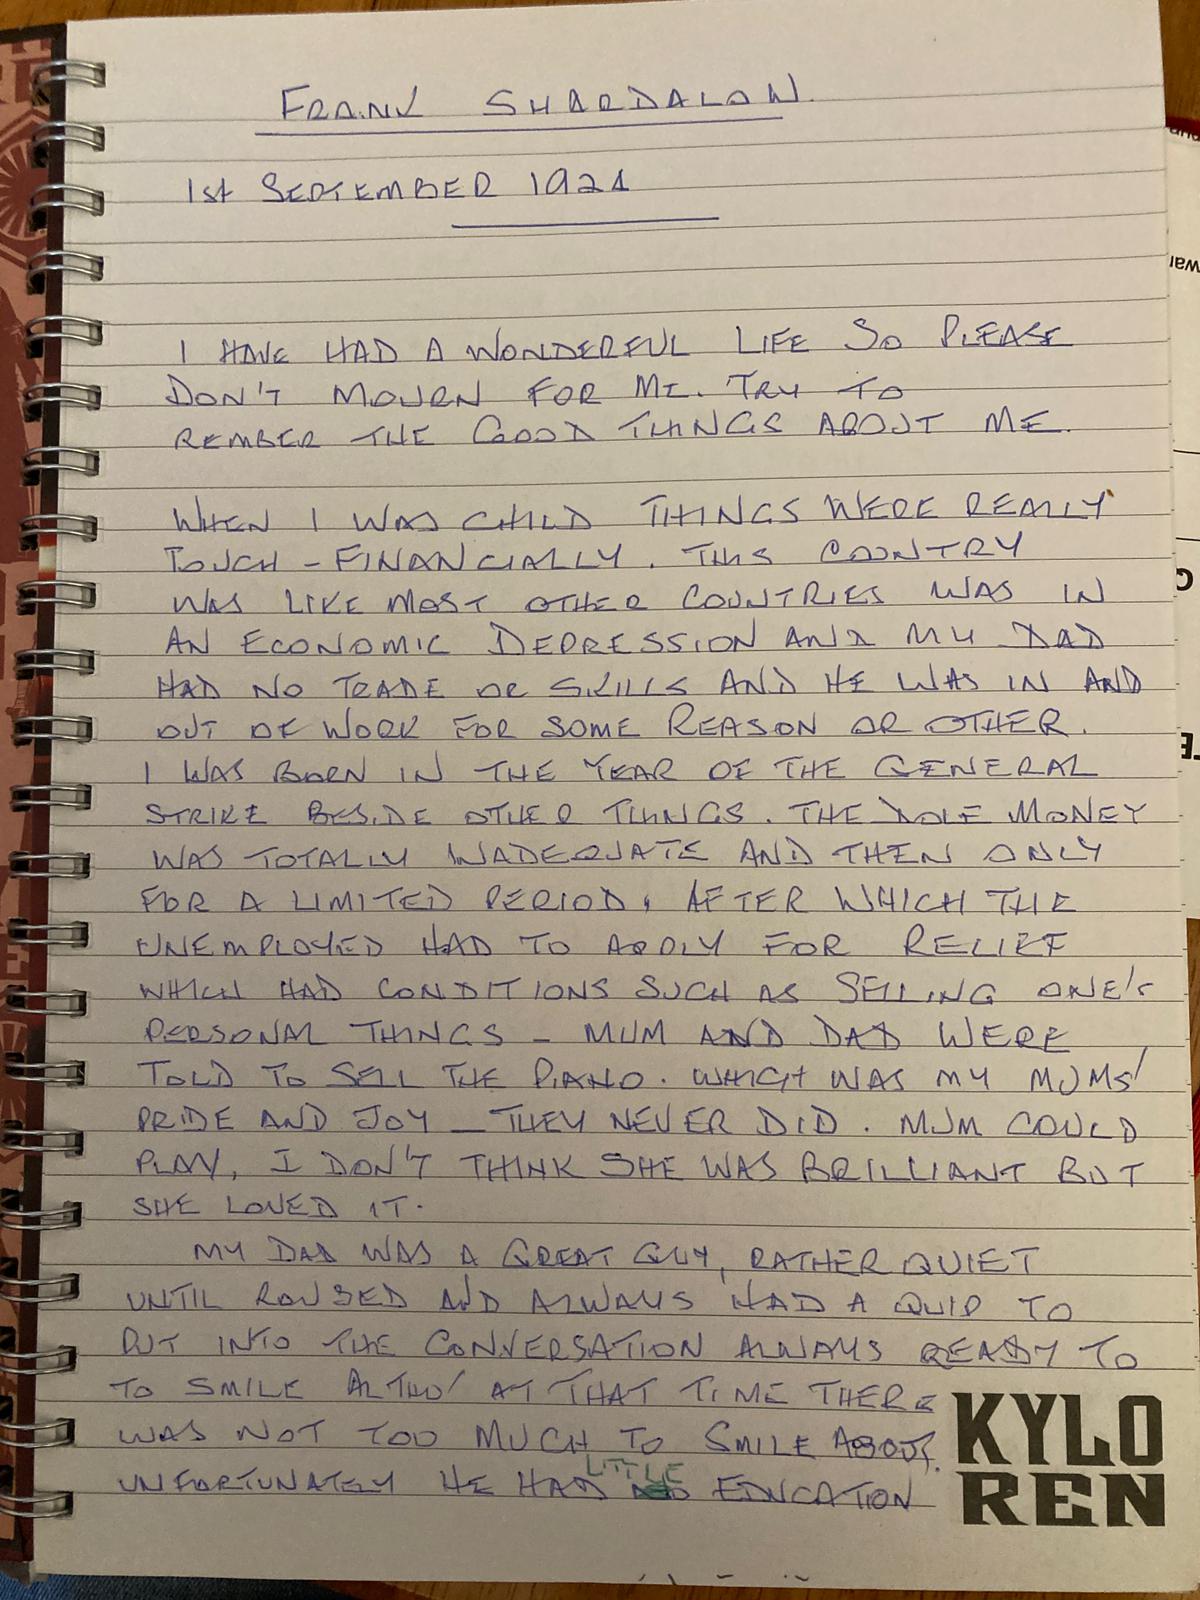 FRANK SHARDALOW.
1st SEPTEMBER 1921
I HAVE HAD A WONDERFUL LIFE SO PLEASE
DON'T MOURN FOR ME. TRY TO
REMBER THE GOOD THINGS ABOUT ME.
WHEN I WAS CHILD THINGS WERE REALLY
TOUGH - FINANCIALLY. THIS COUNTRY
WAS LIKE MOST OTHER COUNTRIES WAS IN
AN ECONOMIC DEPRESSION AND MY DAD
HAD NO TRADE OR SKILLS AND HE WAS IN AND
OUT OF WORK FOR SOME REASON OR OTHER.
I WAS BORN IN THE YEAR OF THE GENERAL
STRIKE BESIDE OTHER THINGS. THE DOLE MONEY
WAS TOTALLY INADEQUATE AND THEN ONLY
FOR A LIMITED PERIOD, AFTER WHICH THE
UNEMPLOYED HAD TO APPLY FOR RELIEF
WHICH HAD CONDITIONS SUCH AS SELLING ONE'S
PERSONAL THINGS - MUM AND DAD WERE
TOLD TO SELL THE PIANO. WHICH WAS MY MUMS'
PRIDE AND JOY - THEY NEVER DID. MUM COULD
PLAY, I DON'T THINK SHE WAS BRILLIANT BUT
SHE LOVED IT.
MY DAD WAS A GREAT GUY, RATHER QUIET
UNTIL ROUSED AND ALWAYS HAD A QUIP TO
PUT INTO THE CONVERSATION ALWAYS READY TO
TO SMILE ALTHO' AT THAT TIME THERE
WAS NOT TOO MUCH TO SMILE ABOUT.
UNFORTUNATELY HE HAD LITTLE EDUCATION
KYLO
REN